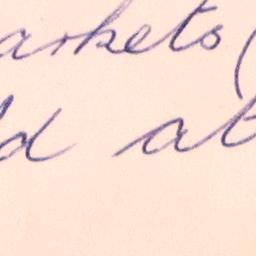 arkets (
d at